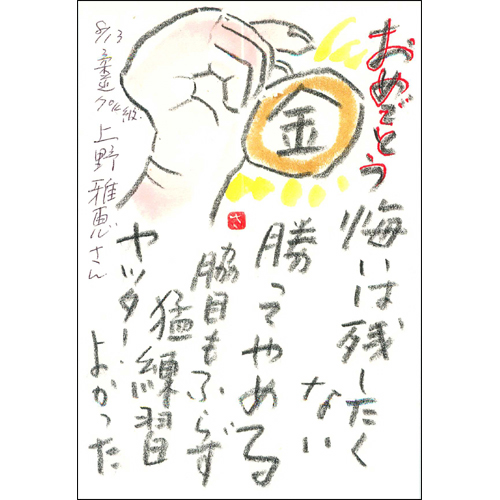 おめでとう
金
悔いは残したく
ない
勝ってやめる
脇目もふらず
猛練習
ヤッター、
よかった
8/13 柔道70k級 上野雅恵さん
さ